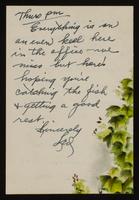 Thurs pm
Everything is on
an even keel here
in the office - we
miss but here's
hoping you're
catching the fish
& getting a good
rest.
Sincerely